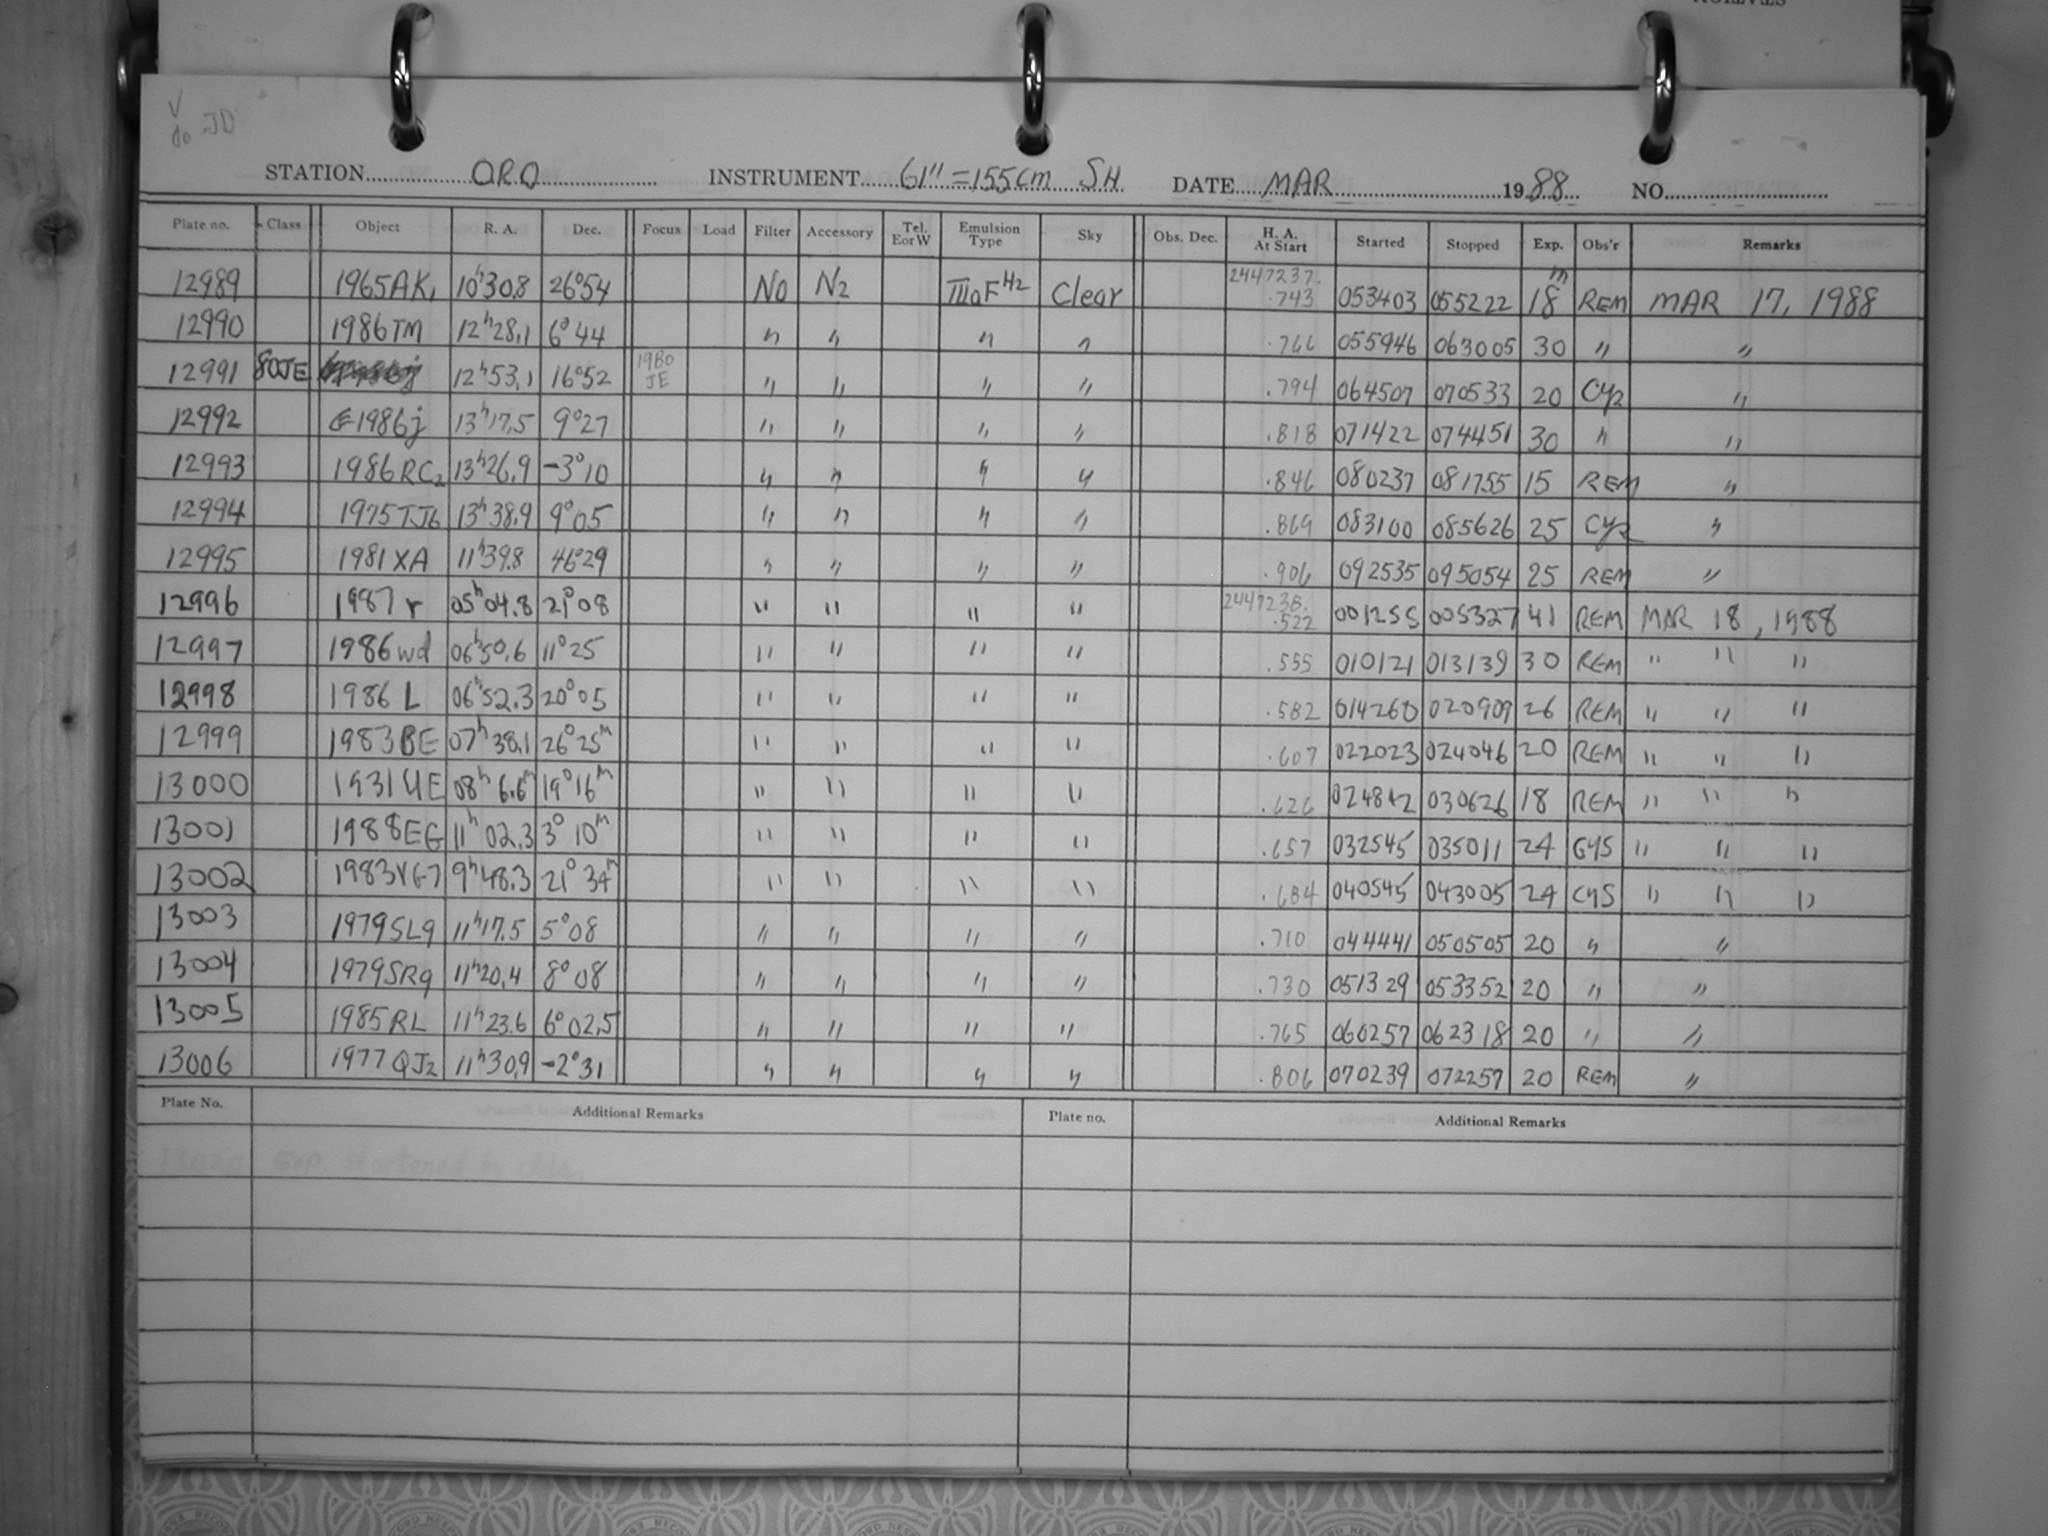 STATION
V
do JD
STATION ORO INSTRUMENT 61" = 155cm SH DATE MAR 1988 NO.
Plate no. Class Object R. A. Dec. Focus Load Filter Accessory Tel. E or W Emulsion Type Sky Obs. Dec. H. A. At Start Started Stopped Exp. Obs'r Remarks
12989 1965AK1 10h30.8 26°54 NO N2 IIIaF H2 Clear 2447237. .743 053403 055222 18m REM MAR 17, 1988
12990 1986TM 12h28.1 6°44 " " " " .766 055946 063005 30 " "
12991 80JE 12h53.1 16°52 1980 JE " " " " .794 064507 070533 20 Cyr "
12992 1986j 13h17.5 9°27 " " " " .818 071422 074451 30 " "
12993 1986RC2 13h26.9 -3°10 " " " " .846 080237 081755 15 REM "
12994 1975TJ6 13h38.9 9°05 " " " " .869 083100 085626 25 Cyr "
12995 1981XA 11h39.8 46°29 " " " " .906 092535 095054 25 REM "
12996 1987r 05h04.8 21°08 " " " " 2447238. .522 001255 005327 41 REM MAR 18, 1988
12997 1986wd 06h50.6 11°25 " " " " .555 010121 013139 30 REM " " "
12998 1986L 06h52.3 20°05 " " " " .582 014260 020909 26 REM " " "
12999 1983BE 07h38.1 26°25m " " " " .607 022023 024046 20 REM " " "
13000 1931UE 08h6.6m 19°16m " " " " .626 024842 030626 18 REM " " "
13001 1988EG 11h02.3 3°10m " " " " .657 032545 035011 24 CYS " " "
13002 1983VG7 9h48.3 21°34m " " " " .684 040545 043005 24 CYS " " "
13003 1979SL9 11h17.5 5°08 " " " " .710 044441 050505 20 " "
13004 1979SR9 11h20.4 8°08 " " " " .730 051329 053352 20 " "
13005 1985RL 11h23.6 6°02.5 " " " " .765 060257 062318 20 " "
13006 1977QJ2 11h30.9 -2°31 " " " " .806 070239 072257 20 REM "
Plate No. Additional Remarks Plate no. Additional Remarks